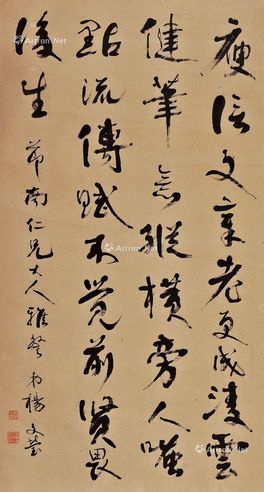 庾信文章老更成凌雲
健筆意縱橫旁人嗤
點流傳賦不覺前賢畏
後生
芾南仁兄大人雅 弟楊文瑩
Artron.Net
Artron.Net
Artron.Net